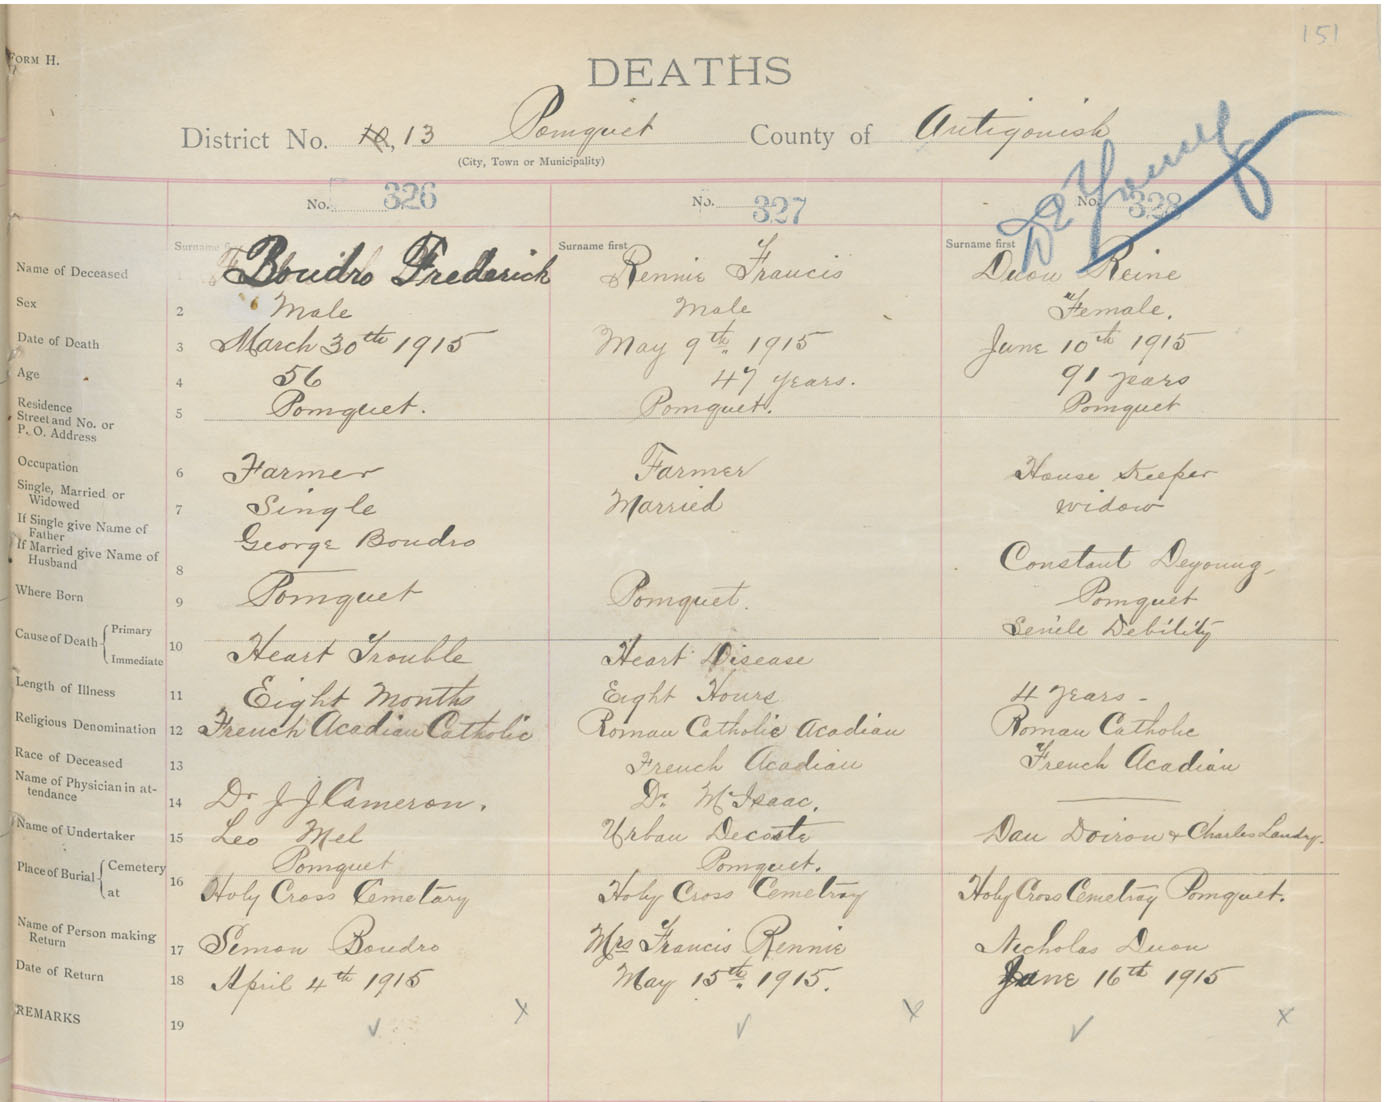 151
FORM H.
DEATHS
District No. 10, 13 Pomquet County of Antigonish
(City, Town or Municipality)
De Young
No. 326 No. 327 No. 328
Surname first Surname first Surname first
Name of Deceased Boudro Frederick Rennie Francis Duon Reine
Sex 2 Male Male Female.
Date of Death 3 March 30th 1915 May 9th 1915 June 10th 1915
Age 4 56 47 years. 91 years
Residence
Street and No. or
P. O. Address 5 Pomquet. Pomquet. Pomquet
Occupation 6 Farmer Farmer House Keeper
Single, Married or
Widowed 7 Single Married widow
If Single give Name of
Father George Boudro
If Married give Name of
Husband 8 Constant Deyoung
Where Born 9 Pomquet Pomquet. Pomquet
Cause of Death { Primary
Immediate 10 Heart Trouble Heart Disease Senile Debility
Length of Illness 11 Eight Months Eight Hours 4 years -
Religious Denomination 12 French Acadian Catholic Roman Catholic Acadian Roman Catholic
Race of Deceased 13 French Acadian French Acadian
Name of Physician in at-
tendance 14 Dr J J Cameron. Dr. McIsaac.
Name of Undertaker 15 Leo Mel Urban Decoste Dan Doiron & Charles Landry.
Place of Burial { Cemetery Pomquet Pomquet.
at 16 Holy Cross Cemetary Holy Cross Cemetray Holy Cross Cemetray Pomquet.
Name of Person making
Return 17 Simon Boudro Mrs Francis Rennie Nicholas Duon
Date of Return 18 April 4th 1915 May 15th 1915. June 16th 1915
REMARKS 19